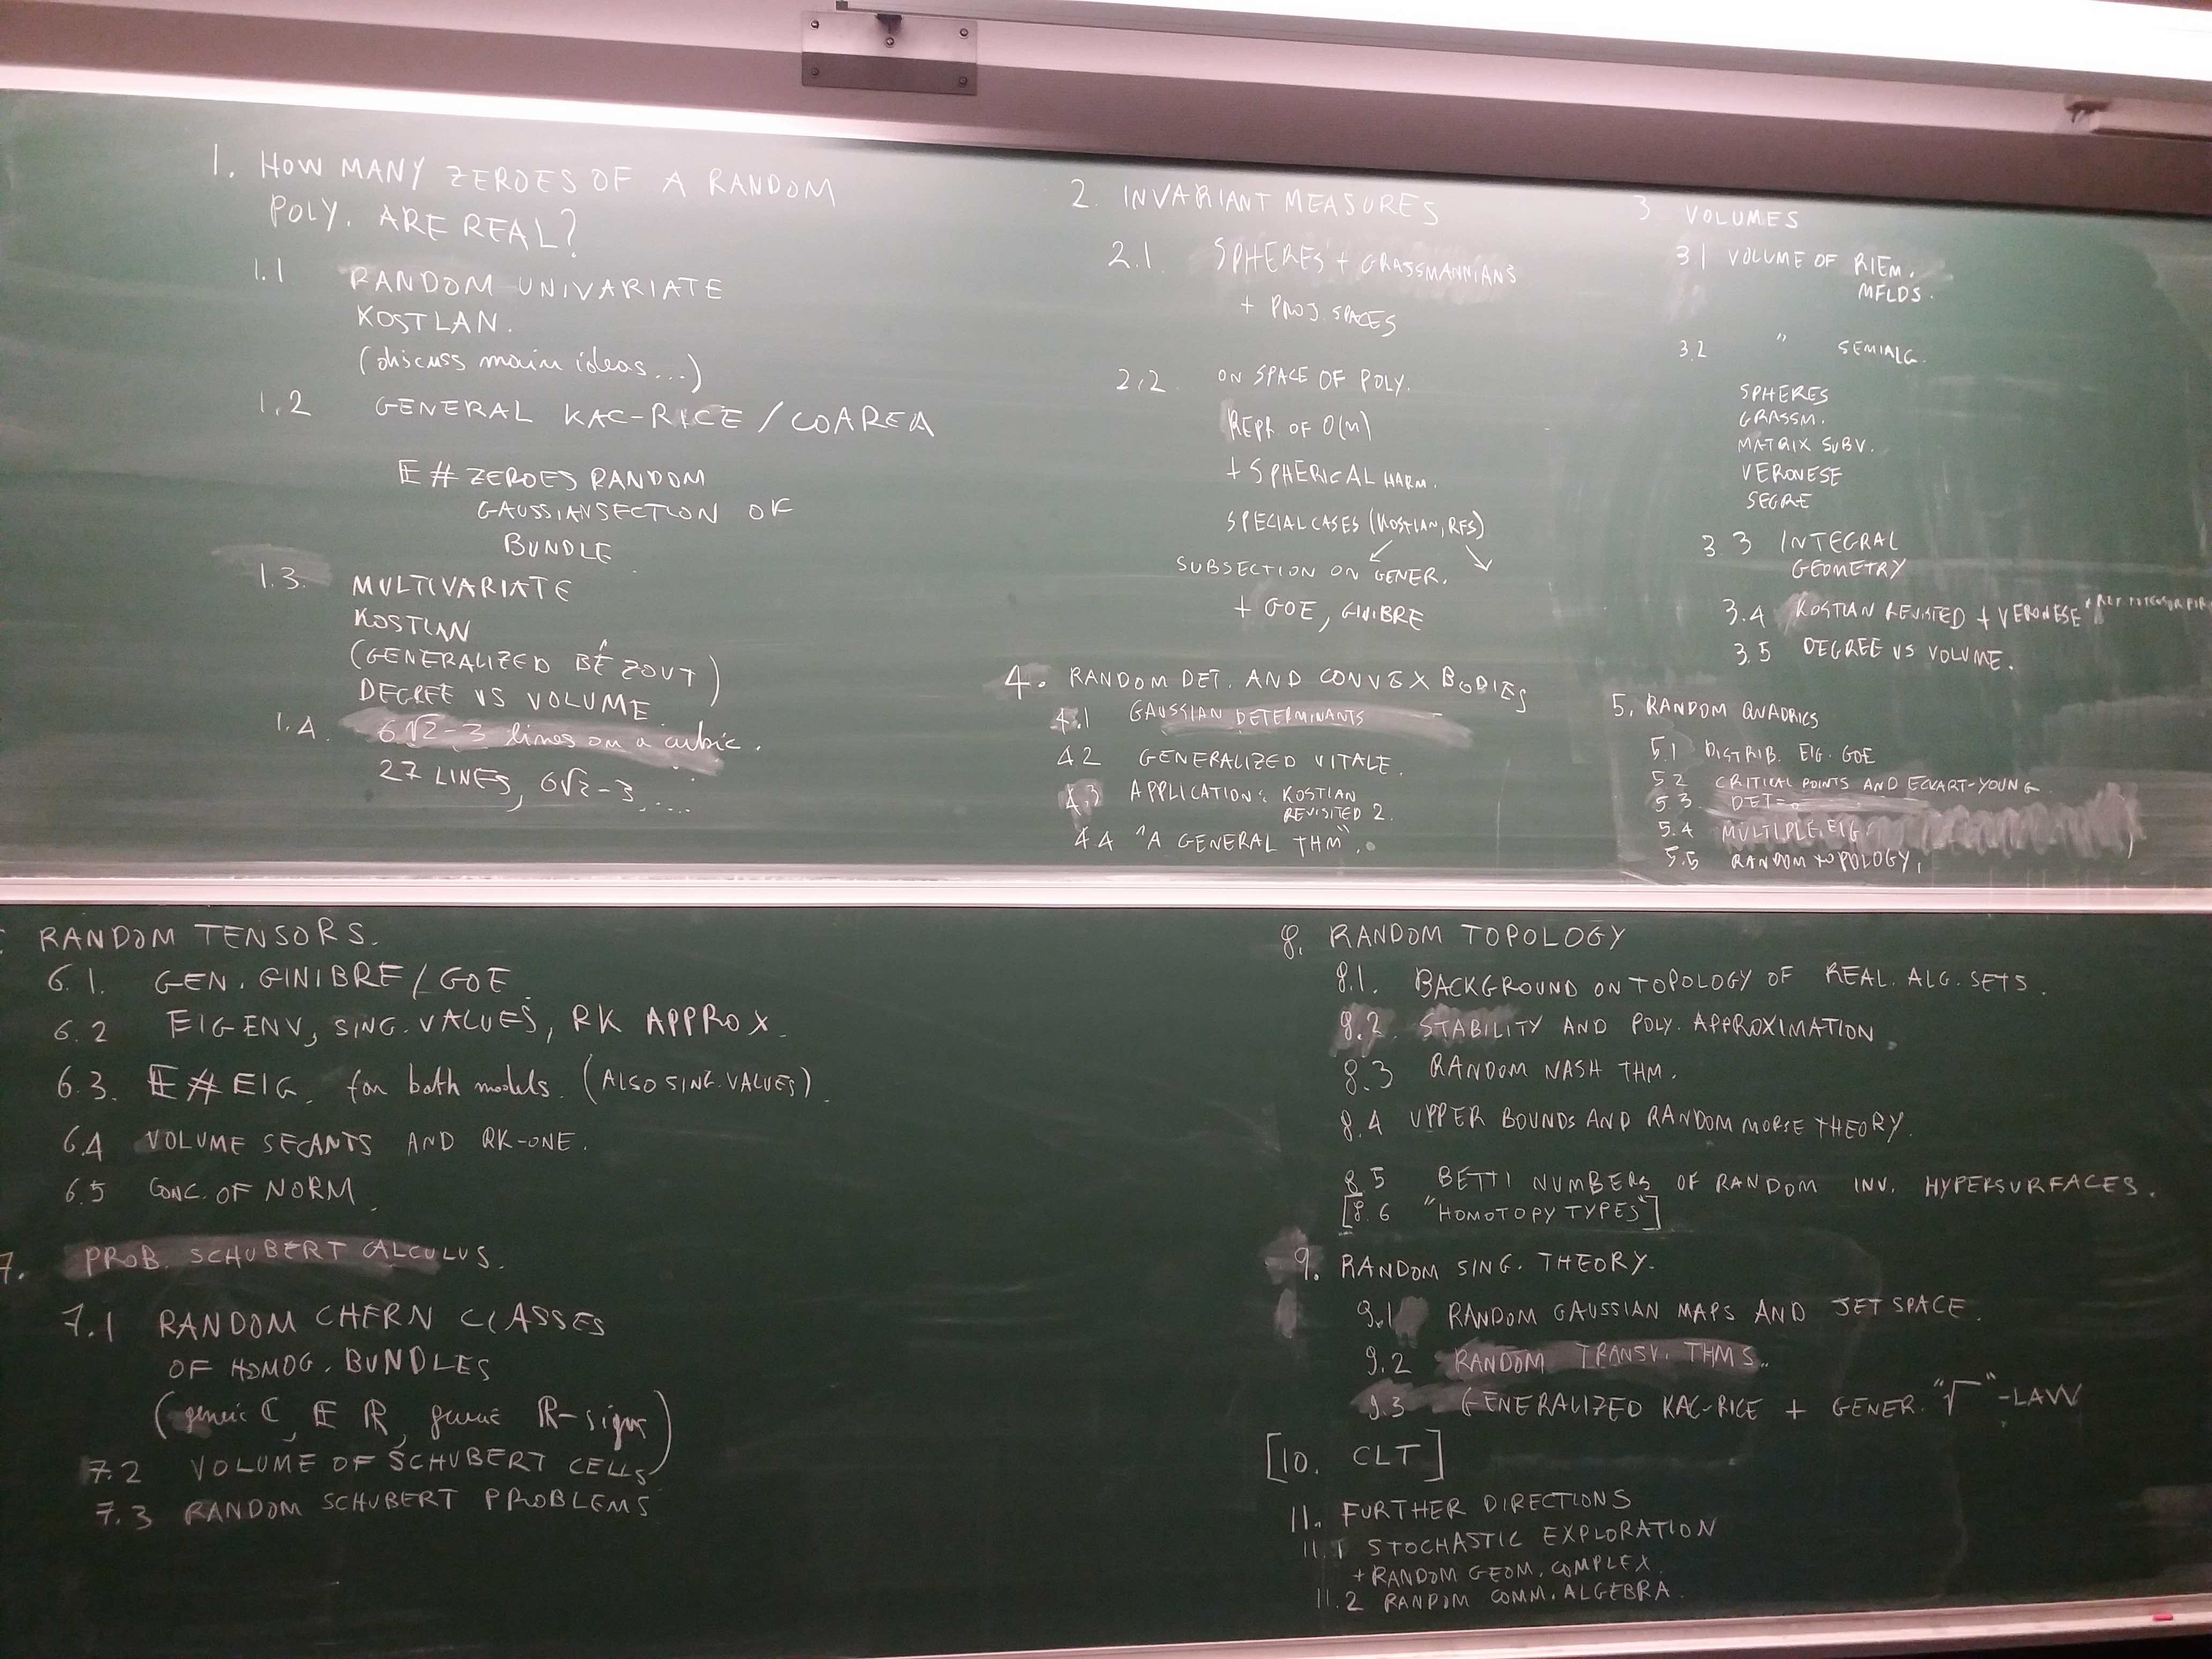 1. HOW MANY ZEROES OF A RANDOM
POLY. ARE REAL?
1.1 RANDOM UNIVARIATE
KOSTLAN.
(discuss main ideas...)
1.2 GENERAL KAC-RICE / COAREA
E # ZEROES RANDOM
GAUSSIAN SECTION OF
BUNDLE
1.3. MULTIVARIATE
KOSTLAN
(GENERALIZED BÉZOUT)
DEGREE VS VOLUME
1.4. 6√2-3 lines on a cubic.
27 LINES, 6√2-3, ....
2. INVARIANT MEASURES
2.1. SPHERES + GRASSMANNIANS
+ PROJ. SPACES
2.2. ON SPACE OF POLY.
REPR. OF O(n)
+ SPHERICAL HARM.
SPECIAL CASES (KOSTLAN, RFS)
SUBSECTION ON GENER.
+ GOE, GINIBRE
3 VOLUMES
3.1 VOLUME OF RIEM.
MFLDS.
3.2 " SEMIALG.
SPHERES
GRASSM.
MATRIX SUBV.
VERONESE
SEGRE
3.3 INTEGRAL
GEOMETRY
3.4 KOSTLAN REVISITED + VERONESE
3.5 DEGREE VS VOLUME.
4. RANDOM DET. AND CONVEX BODIES
4.1 GAUSSIAN DETERMINANTS
4.2 GENERALIZED VITALE.
4.3 APPLICATION: KOSTLAN
REVISITED 2.
4.4 "A GENERAL THM".
5. RANDOM QUADRICS
5.1 DISTRIB. EIG. GOE
5.2 CRITICAL POINTS AND ECKART-YOUNG
5.3. DET=0
5.4 MULTIPLE EIG.
5.5 RANDOM TOPOLOGY.
RANDOM TENSORS.
6.1. GEN. GINIBRE / GOE.
6.2 EIGENV, SING. VALUES, RK APPROX.
6.3. E # EIG. for both models. (ALSO SING. VALUES).
6.4 VOLUME SECANTS AND RK-ONE.
6.5 CONC. OF NORM.
7. PROB. SCHUBERT CALCULUS.
7.1 RANDOM CHERN CLASSES
OF HOMOG. BUNDLES
(generic C, E R, generic R-sign)
7.2 VOLUME OF SCHUBERT CELLS
7.3 RANDOM SCHUBERT PROBLEMS
8. RANDOM TOPOLOGY
8.1. BACKGROUND ON TOPOLOGY OF REAL. ALG. SETS.
8.2 STABILITY AND POLY. APPROXIMATION.
8.3 RANDOM NASH THM.
8.4 UPPER BOUNDS AND RANDOM MORSE THEORY.
8.5 BETTI NUMBERS OF RANDOM INV. HYPERSURFACES.
[8.6 "HOMOTOPY TYPES"]
9. RANDOM SING. THEORY.
9.1 RANDOM GAUSSIAN MAPS AND JET SPACE.
9.2 RANDOM TRANSV. THMS.
9.3 GENERALIZED KAC-RICE + GENER. "√"-LAW
[10. CLT]
11. FURTHER DIRECTIONS
11.1 STOCHASTIC EXPLORATION
+ RANDOM GEOM. COMPLEX.
11.2 RANDOM COMM. ALGEBRA.